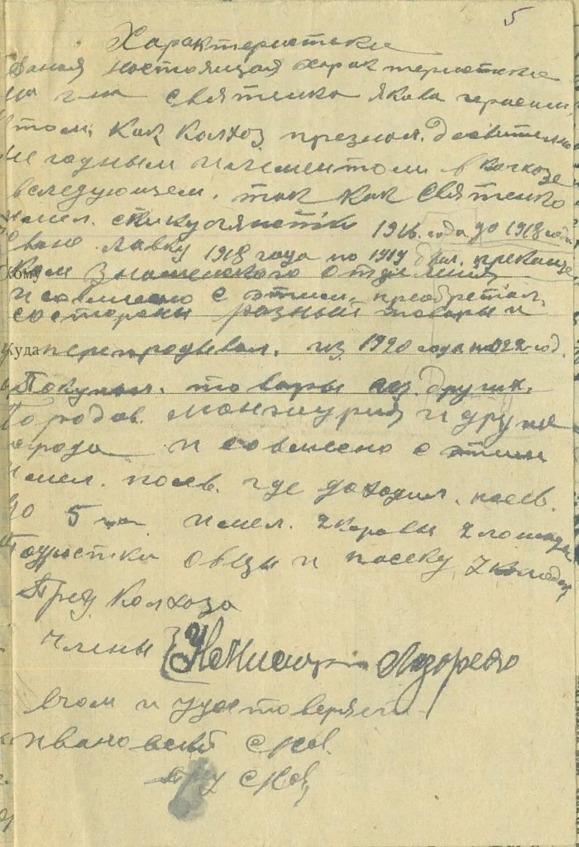 5
Характеристика
даная настоящая характеристика
на г-на Святенко Якова Гераси
том, как колхоз презнал. девствительно
не годным элементом в колхозе
вследующем. так как Святенко
имел. 1916. года до 1918 года
лавку 1918 года по 1919 был.
кому Знаменского отделения
и совмесно с этим. преобретал.
состороны разный товары и
Куда перепродывал. из 1920 года по 1922 год.
Покупал. товары из других.
Городов. Манжурия и други
города и совмесно с этим
имел. посев. где доходил. посев.
до 5 имел. 2 коровы 2 лошади
Подростки овцы и пасеку 7
Пред. Колхоза
члены
вчом и удостоверяем
Ивановский